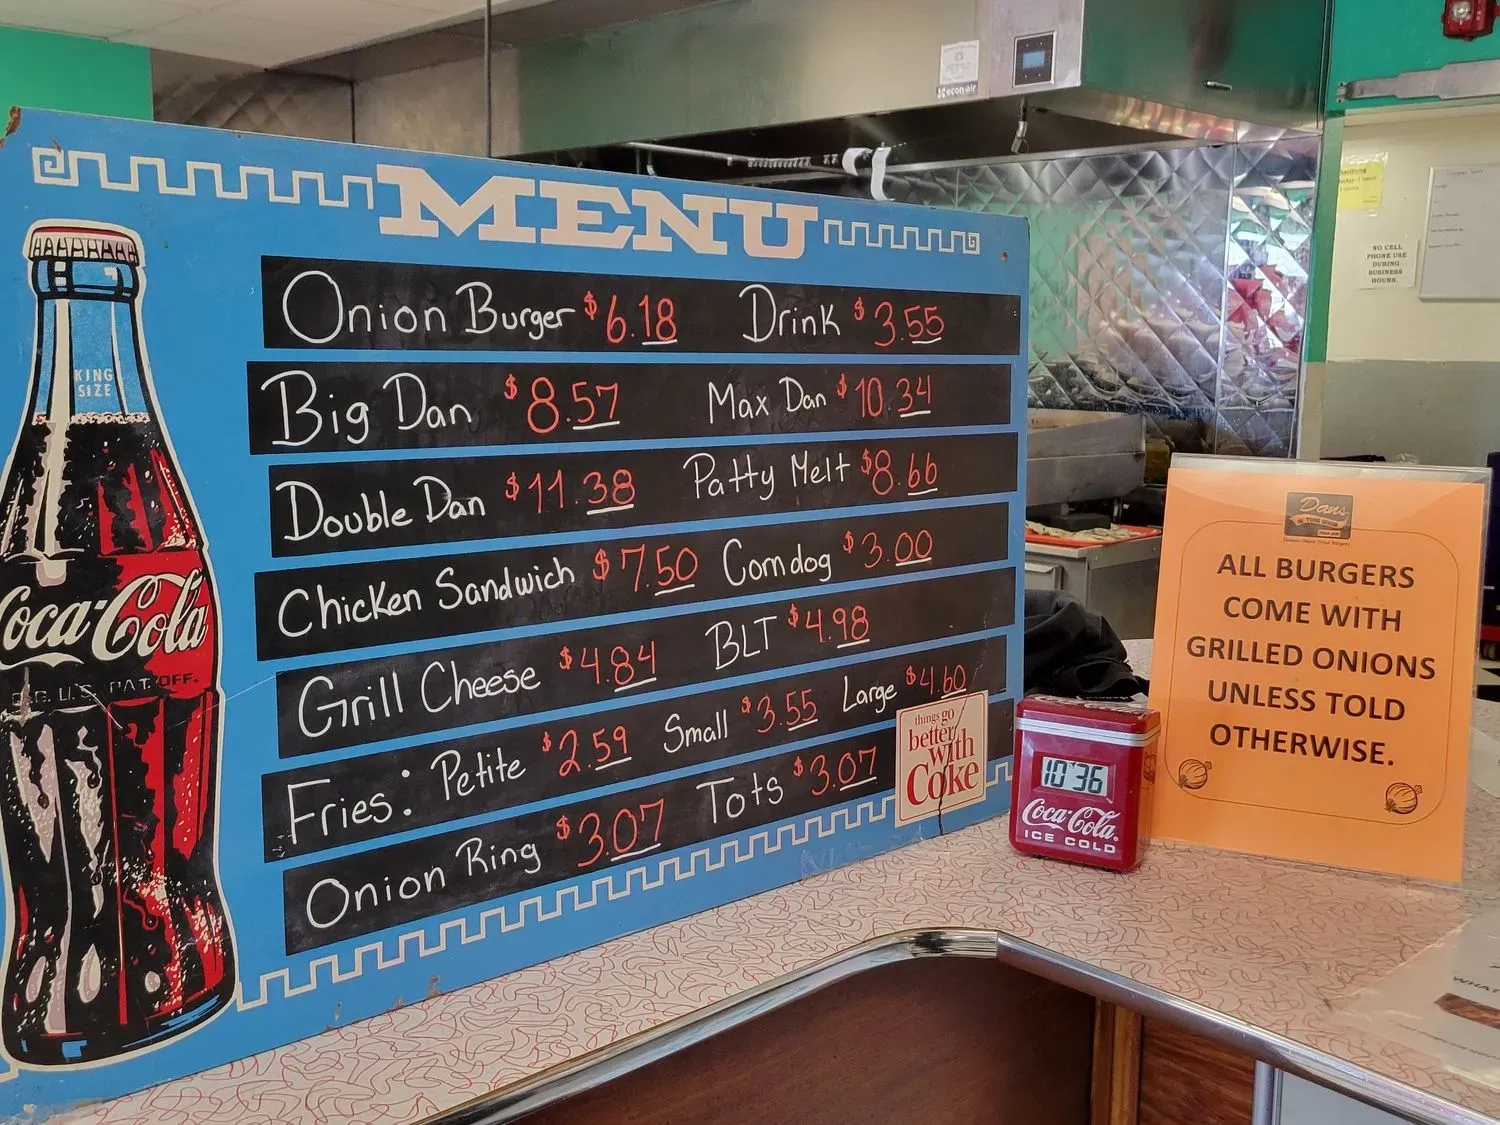 MENU
Onion Burger $6.18 Drink $3.55
Big Dan $8.57 Max Dan $10.34
Double Dan $11.38 Patty Melt $8.66
Chicken Sandwich $7.50 Corndog $3.00
Grill Cheese $4.84 BLT $4.98
Fries: Petite $2.59 Small $3.55 Large $4.60
Onion Ring $3.07 Tots $3.07
KING
SIZE
Coca-Cola
U.S. PAT. OFF.
things go
better
with
Coke
10:36
Coca-Cola
ICE COLD
Dans
ALL BURGERS
COME WITH
GRILLED ONIONS
UNLESS TOLD
OTHERWISE.
econ-air
NO CELL
PHONE USE
DURING
BUSINESS
HOURS.
WHAT